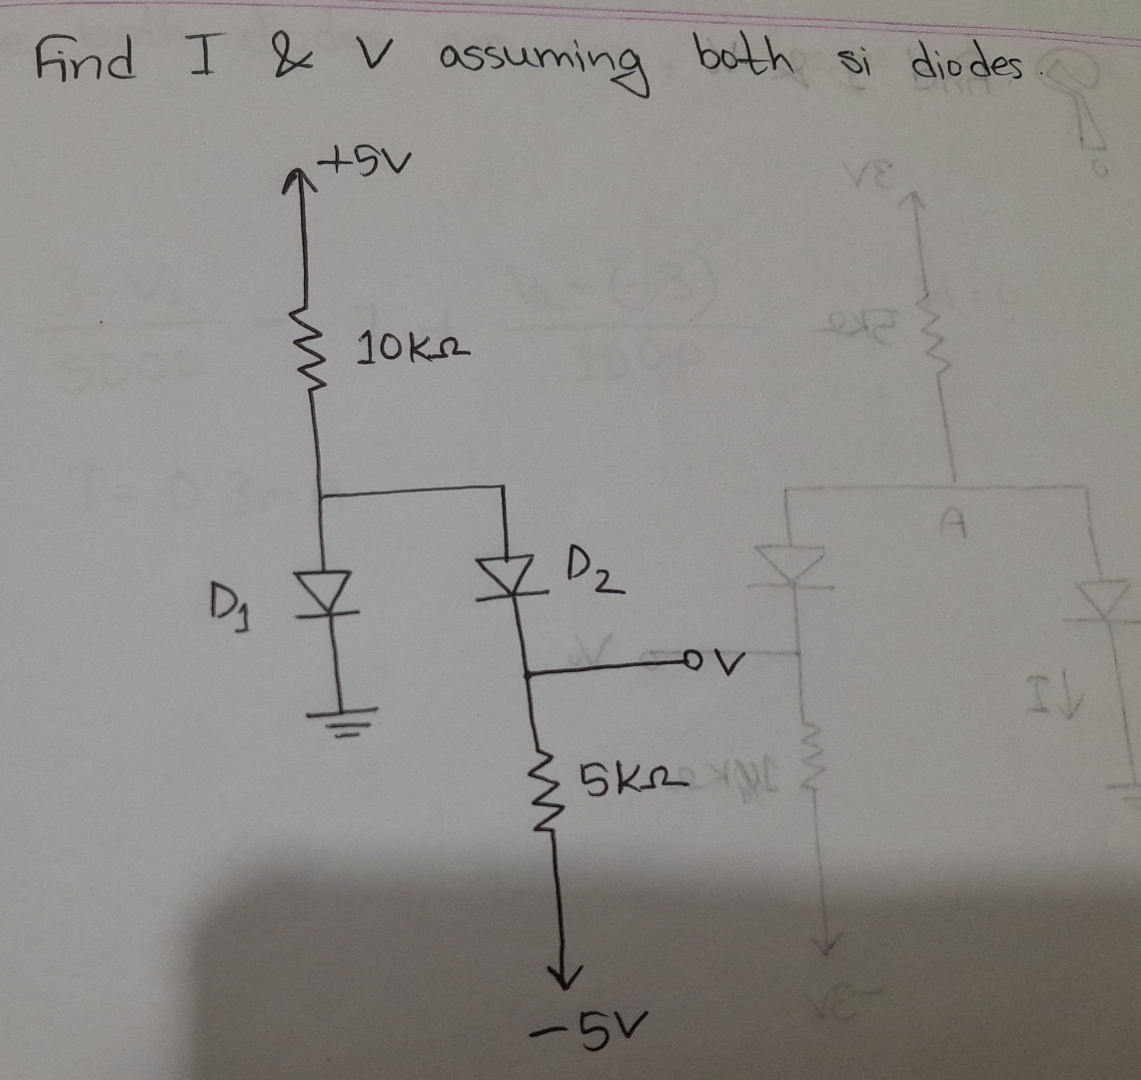 Find I & V assuming both si diodes.
+5V
10KΩ
D1
D2
V
5KΩ
-5V